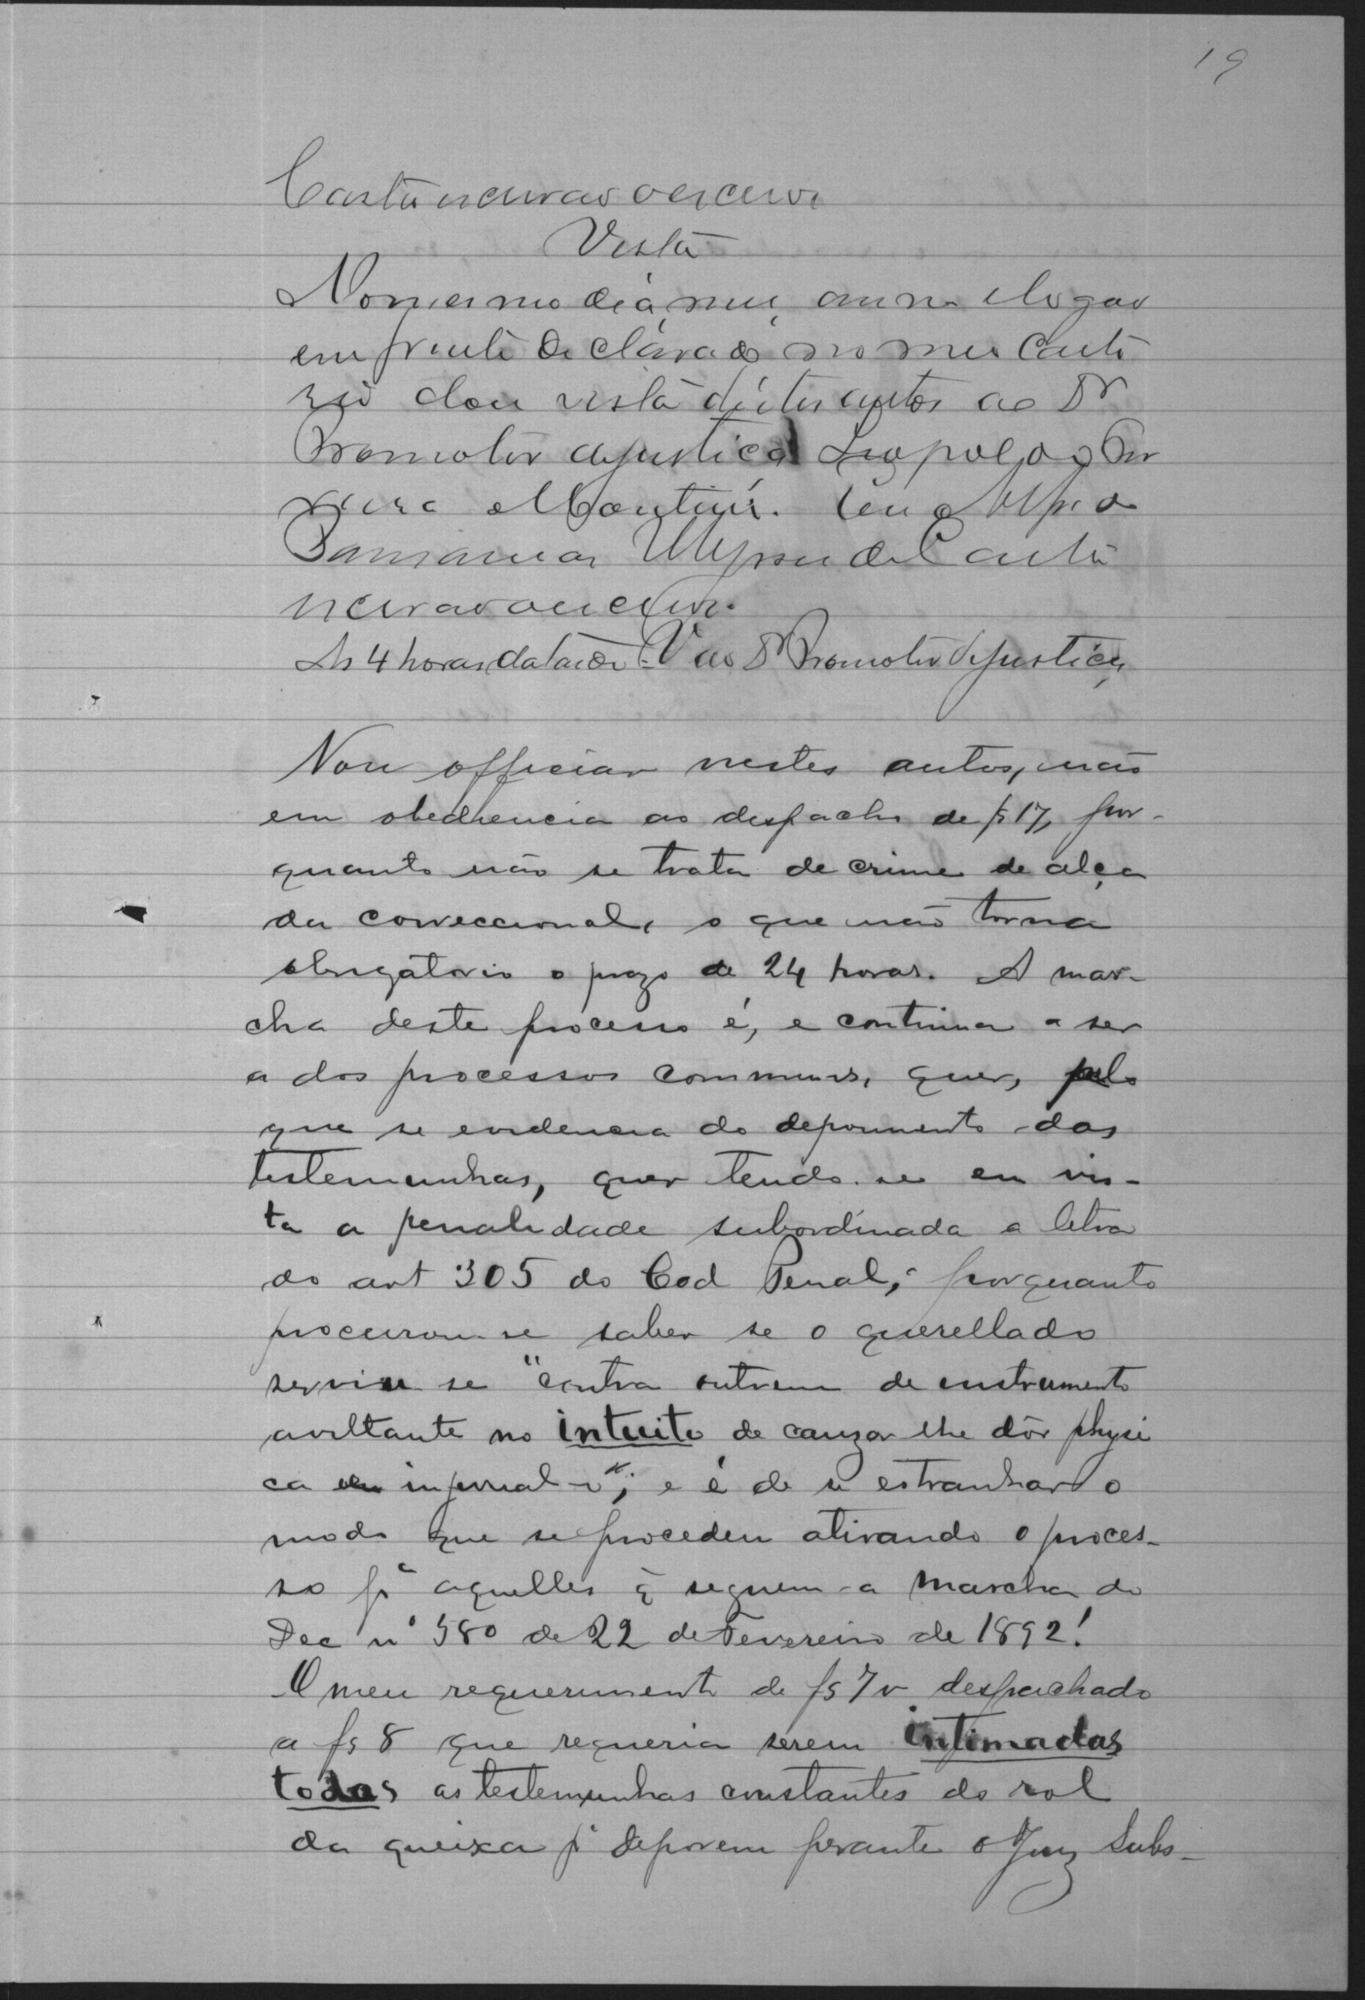 19
Vista
No mesmo dia, mez, anno e logar
em frente declarado no meu carto
rio dou vista d'estes autos ao Dr
Promotor de justiça Leopoldo
Eu
As 4 horas da tarde = V ao Dr Promotor de justiça
Vou officiar nestes autos, não
em obediencia ao despacho de fs 17, por-
quanto não se trata de crime de alça
da correccional, o que não torna
obrigatorio o prazo de 24 horas. A mar-
cha deste processo é, e continua a ser
a dos processos communs, quer, pelo
que se evidencia do depoimento das
testemunhas, quer tendo-se em vis-
ta a penalidade subordinada a letra
do art 305 do Cod Penal, porquanto
procurou-se saber se o querellado
serviu se "contra outrem de instrumento
aviltante no intuito de cauzar lhe dôr physi
ca ou injurial-o"; e é de se estranhar o
modo que se procedeu atirando o proces-
so pª aquelles q̃ seguem a marcha do
Dec nº 580 de 22 de Fevereiro de 1892!
O meu requerimento de fs 7 v despachado
a fs 8 que requeria serem intimadas
todas as testemunhas constantes do rol
da queixa pª deporem perante o Juiz Subs-